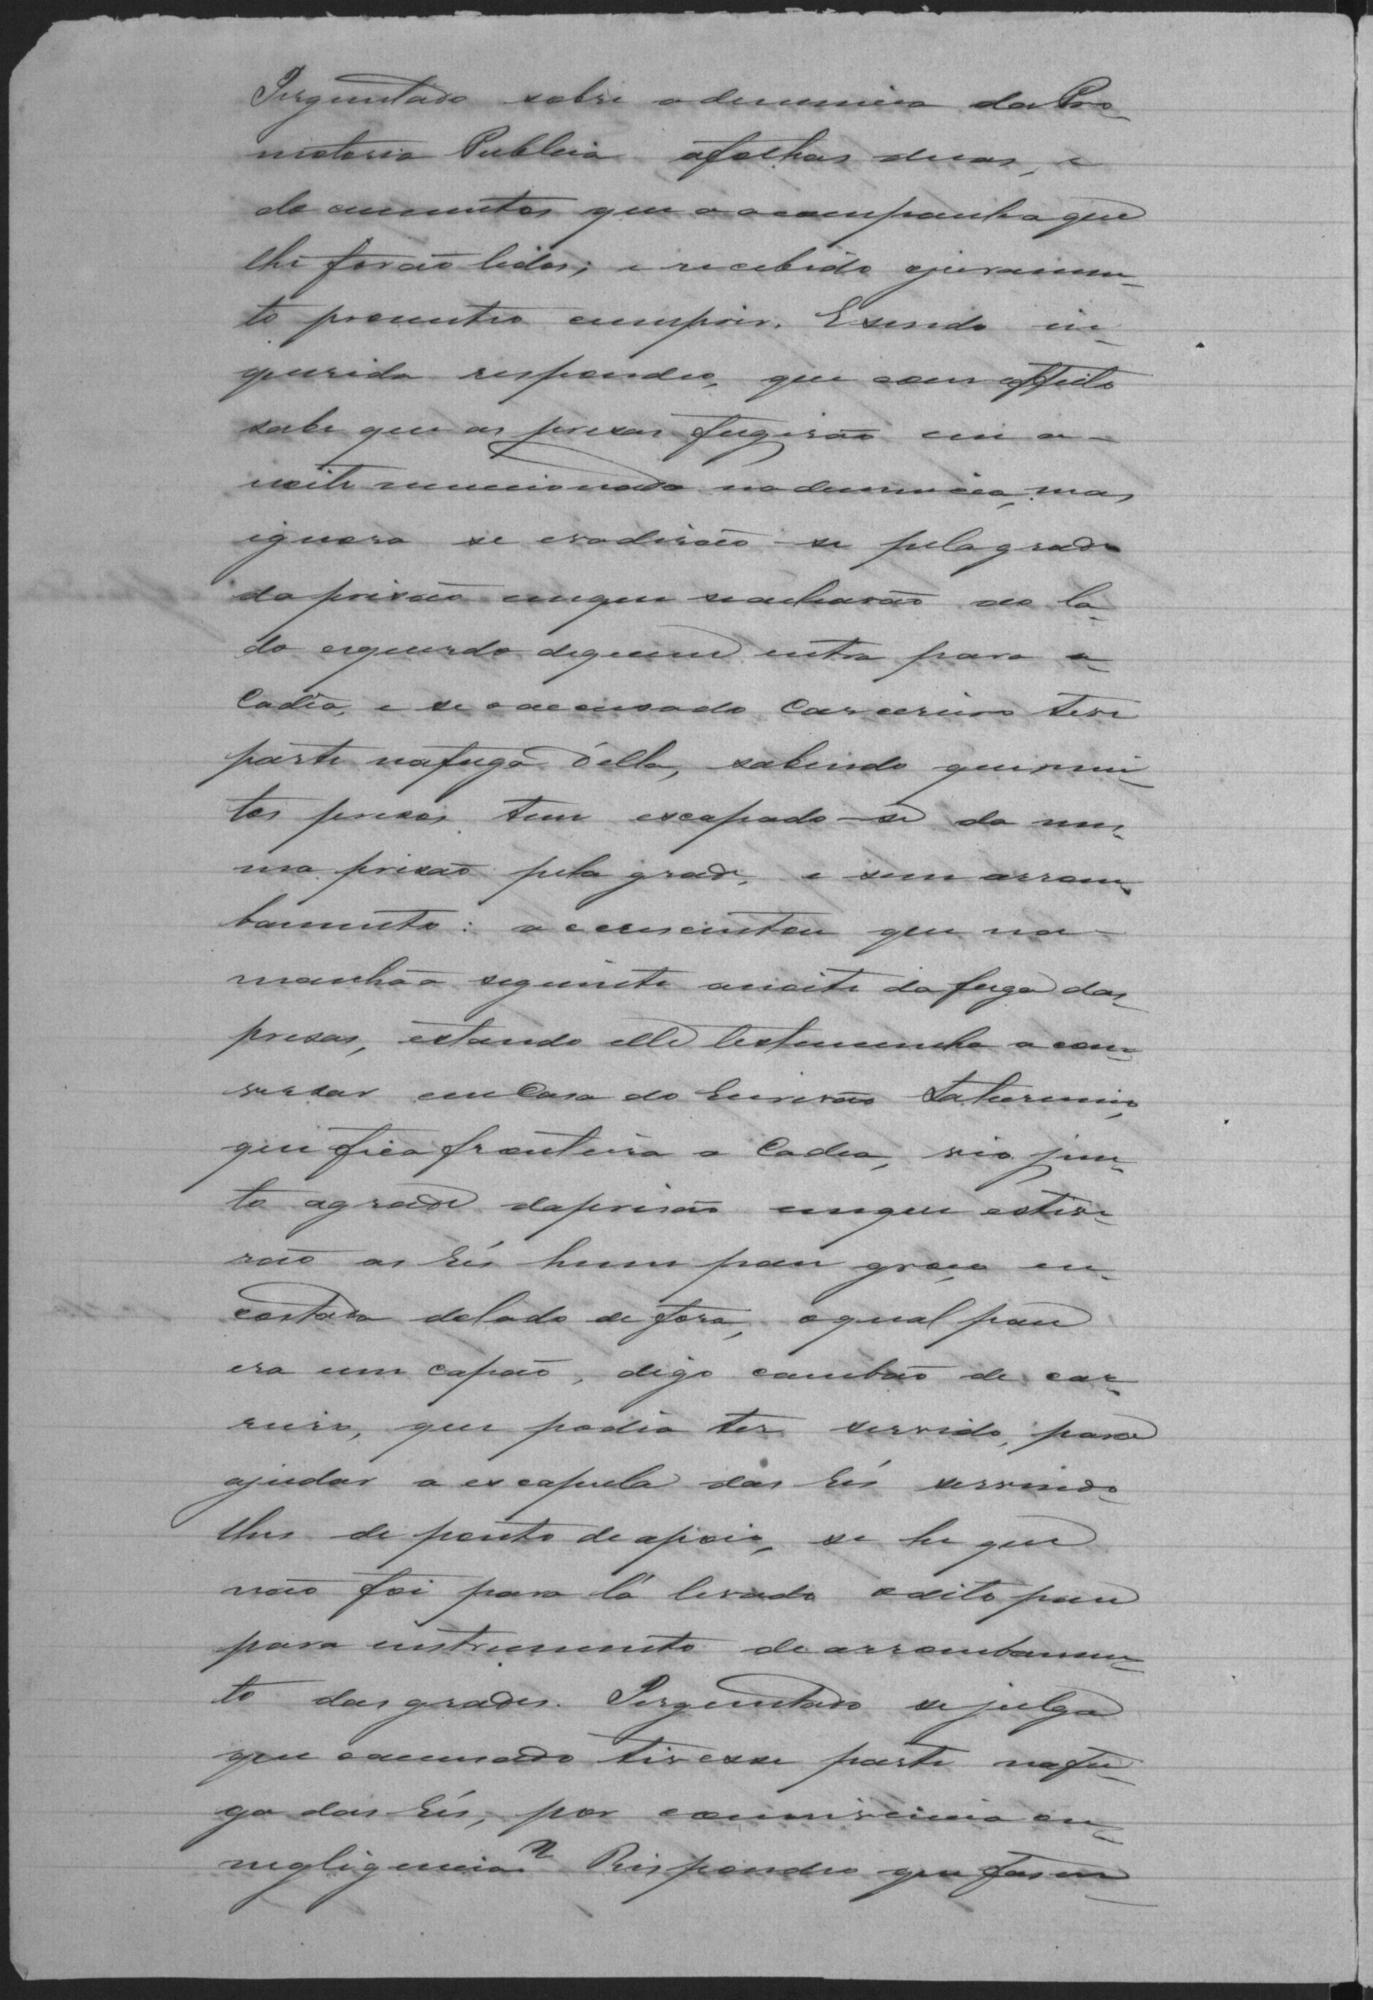 Perguntado sobre a denuncia da Pro-
motoria Publica afolhas duas, e
documentos que a acompanha que
lhe forão lidos; e recebido ojuramen-
to prometteo cumprir. E sendo in-
querida respondeo, que com effeito
sabe que as prezas fugirão em a-
noite mencionada na denuncia, mas
ignora se evadirão-se pela grade
da prizão emque seachavão do la-
do esquerdo dequem entra para a
Cadêa, e se o accusado Carcereiro teve
parte nafuga d'ella, sabendo que mui-
tos prezos tem escapado-se da mes-
ma prizão pela grade, e sem arrom-
bamento: accrescentou que na-
manhã a seguinte anoite da fuga das
prezas, estando elle testemunha a con-
versar em Casa do Escrivão
que fica fronteira a Cadêa, vio jun-
to agrade daprisão emque estive-
rão as Rés hum pau groço en-
costado dolado de fora, oqual pau
era um capão, digo cambão de car-
reiro, que podia ter servido, para
ajudar a escapula das Rés servindo-
lhes de ponto de apoio, se he que
não foi para lá levado o dito pau
para instrumento de arrombamen-
to das grades. Perguntado se julga
que o accusado tivesse parte nafu-
ga das Rés, por connivencia ou-
negligencia? Respondeo que